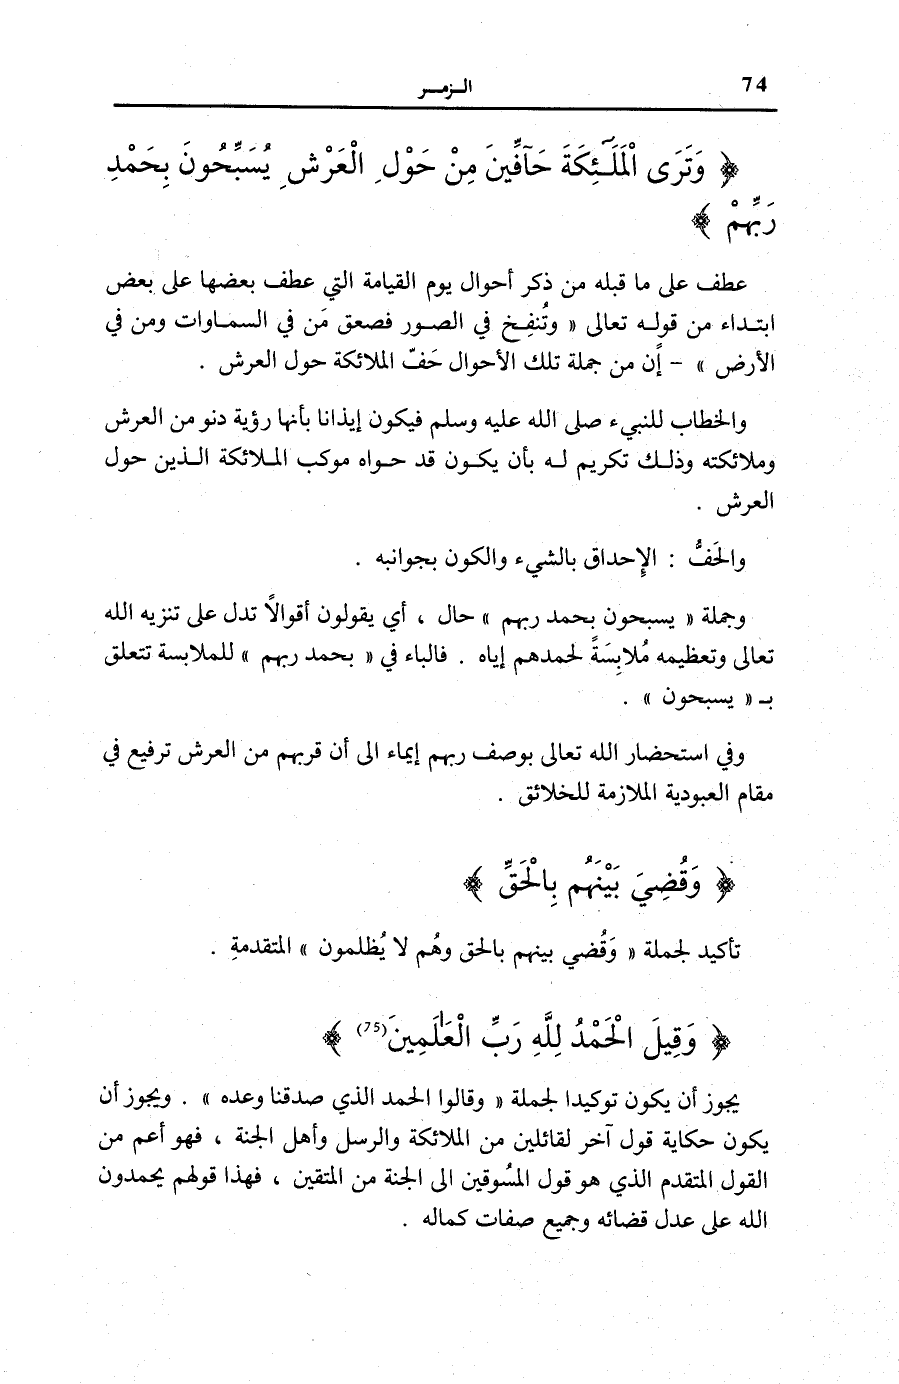 74
الـزمـر
﴿ وَتَرَى الْمَلَـٰٓئِكَةَ حَآفِّينَ مِنْ حَوْلِ الْعَرْشِ يُسَبِّحُونَ بِحَمْدِ
رَبِّهِمْ ﴾
عطف على ما قبله من ذكر أحوال يوم القيامة التي عطف بعضها على بعض
ابتـداء من قولـه تعالى « وتُنفِـخ في الصـور فصعق مَن في السمـاوات ومن في
الأرض » - إن من جملة تلك الأحوال حَفّ الملائكة حول العرش .
والخطاب للنبيء صلى الله عليه وسلم فيكون إيذانا بأنها رؤية دنو من العرش
وملائكته وذلـك تكريم لـه بأن يكـون قد حـواه موكب المـلائكة الـذين حول
العرش .
والحَفُّ : الإحداق بالشيء والكون بجوانبه .
وجملة « يسبحون بحمد ربهم » حال ، أي يقولون أقوالاً تدل على تنزيه الله
تعالى وتعظيمه مُلابِسَةً لحمدهم إياه . فالباء في « بحمد ربهم » للملابسة تتعلق
بـ « يسبحون » .
وفي استحضار الله تعالى بوصف ربهم إيماء الى أن قربهم من العرش ترفيع في
مقام العبودية الملازمة للخلائق .
﴿ وَقُضِيَ بَيْنَهُم بِالْحَقِّ ﴾
تأكيد لجملة « وَقُضي بينهم بالحق وهُم لا يُظلمون » المتقدمةِ .
﴿ وَقِيلَ الْحَمْدُ لِلَّهِ رَبِّ الْعَـٰلَمِينَ(75) ﴾
يجوز أن يكون توكيدا لجملة « وقالوا الحمد الذي صدقنا وعده » . ويجوز أن
يكون حكاية قول آخر لقائلين من الملائكة والرسل وأهل الجنة ، فهو أعم من
القول المتقدم الذي هو قول المسُوقين الى الجنة من المتقين ، فهذا قولهم يحمدون
الله على عدل قضائه وجميع صفات كماله .